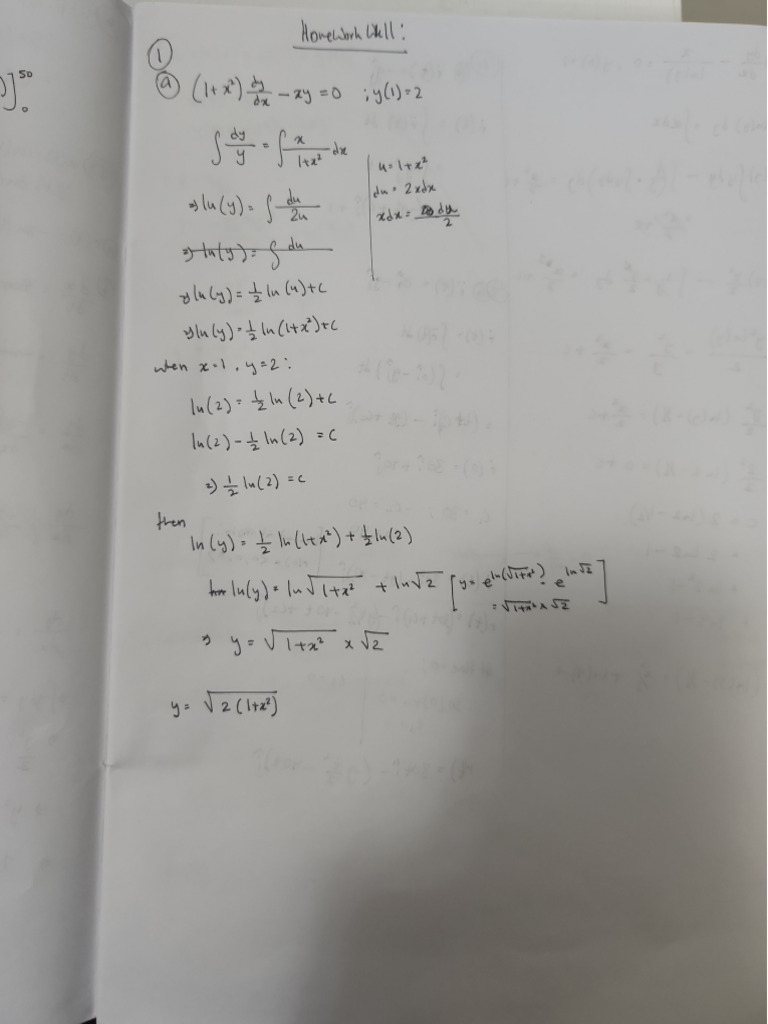 )]⁵⁰₀
Homework
①
ⓐ (1+x²) dy/dx - xy = 0 ; y(1)=2
∫ dy/y = ∫ x/(1+x²) dx
u = 1+x²
du = 2xdx
xdx = du/2
⇒ ln(y) = ∫ du/2u
⇒ ln(y) = ∫ du
⇒ ln(y) = ½ ln(u)+c
⇒ ln(y) = ½ ln(1+x²)+c
when x=1, y=2:
ln(2) = ½ ln(2)+c
ln(2) - ½ ln(2) = c
⇒ ½ ln(2) = c
then
ln(y) = ½ ln(1+x²) + ½ ln(2)
ln(y) = ln√(1+x²) + ln√2 [y = e^(ln(√(1+x²))) · e^(ln√2)
= √(1+x²) × √2]
⇒ y = √(1+x²) × √2
y = √(2(1+x²))